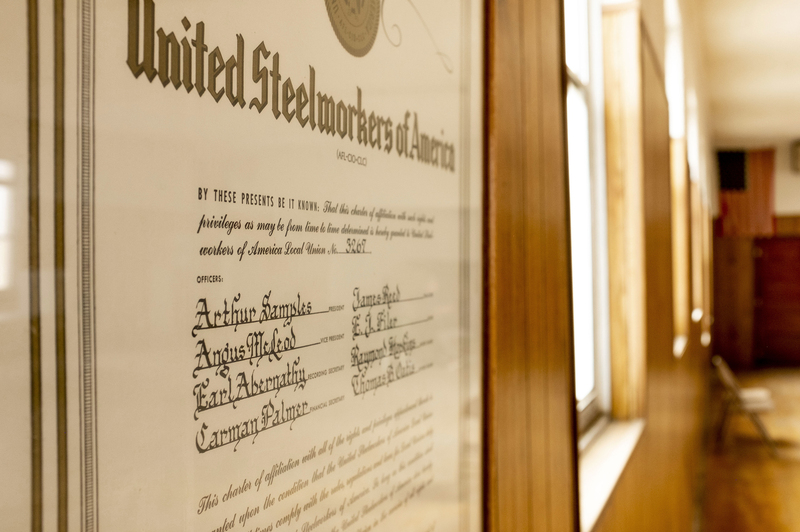 United Steelworkers of America
(AFL-CIO-CLC)
BY THESE PRESENTS BE IT KNOWN: That this charter of affiliation with such rights and
privileges as may be from time to time determined is hereby granted to United Steel
workers of America Local Union No. 3267
OFFICERS:
Arthur Samples PRESIDENT
Angus McLeod VICE PRESIDENT
Earl Abernathy RECORDING SECRETARY
Carman Palmer FINANCIAL SECRETARY
James Reed
E. J. Filer
Raymond
Thomas B.
This charter of affiliation with all of the rights and privileges
upon the condition that the United Steelworkers of America
comply with the